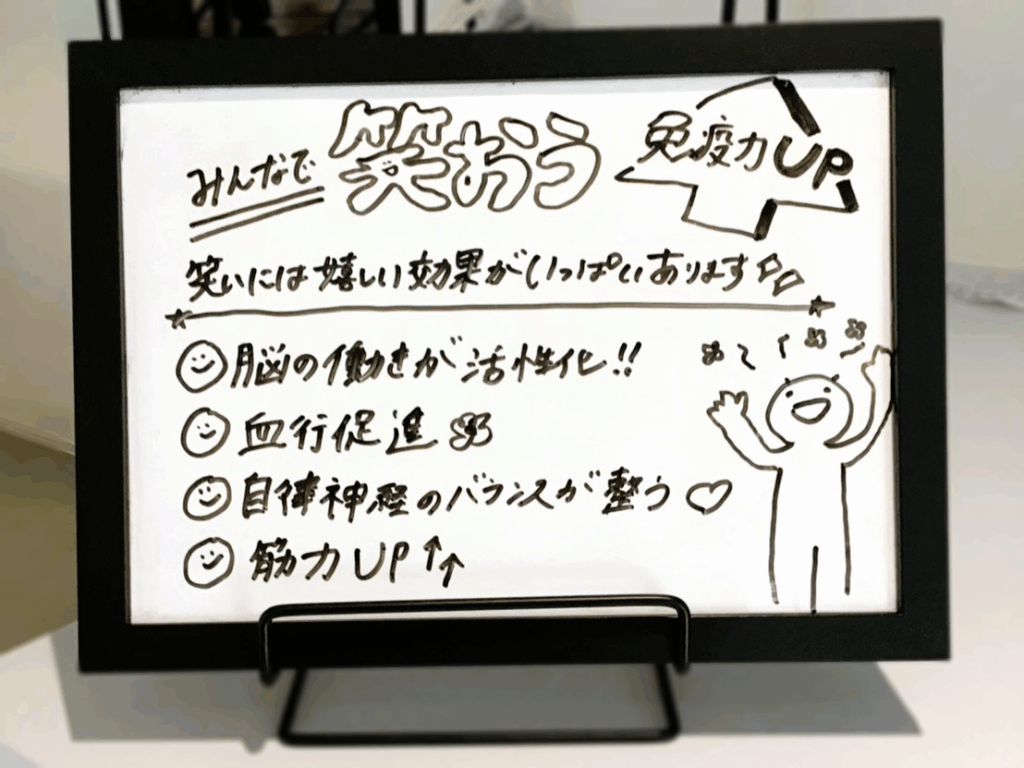 みんなで 笑おう 免疫力UP
笑いには嬉しい効果がいっぱいあります
脳の働きが活性化!!
血行促進
自律神経のバランスが整う♡
筋力UP↑↑